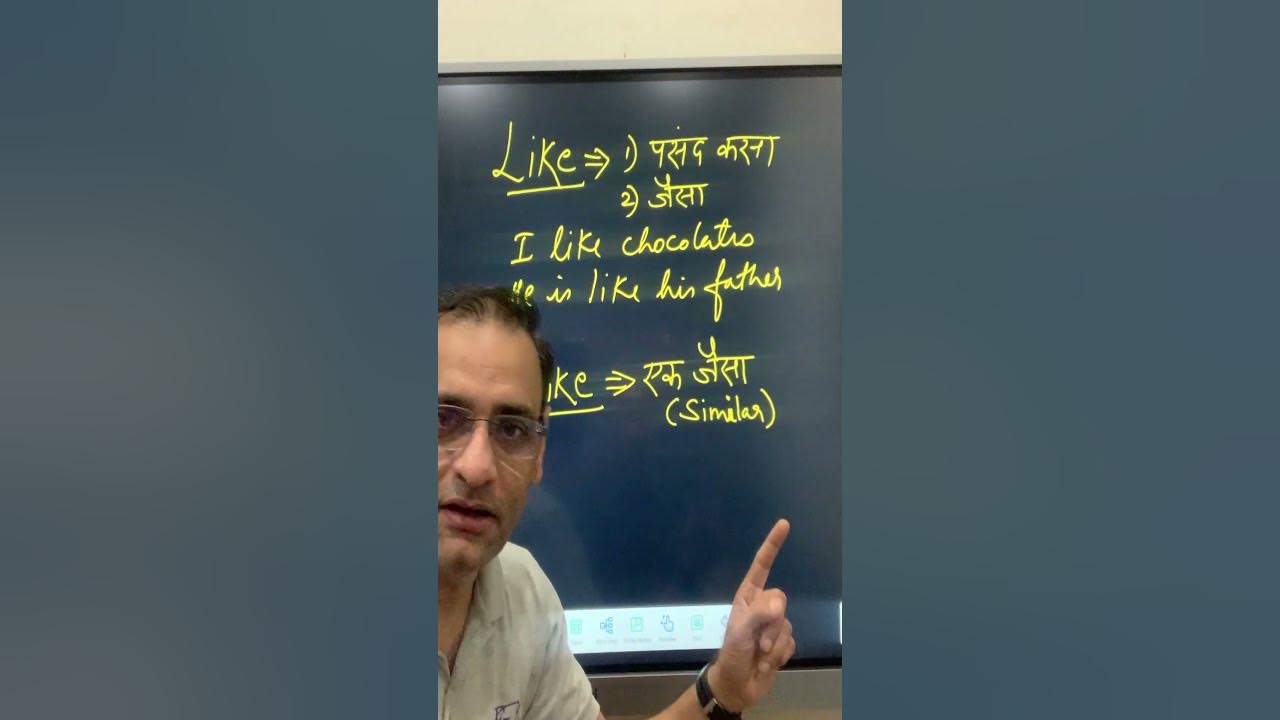 Like ⇒ 1) पसंद करना
2) जैसा
I like chocolates
He is like his father
ike ⇒ एक जैसा
(Similar)